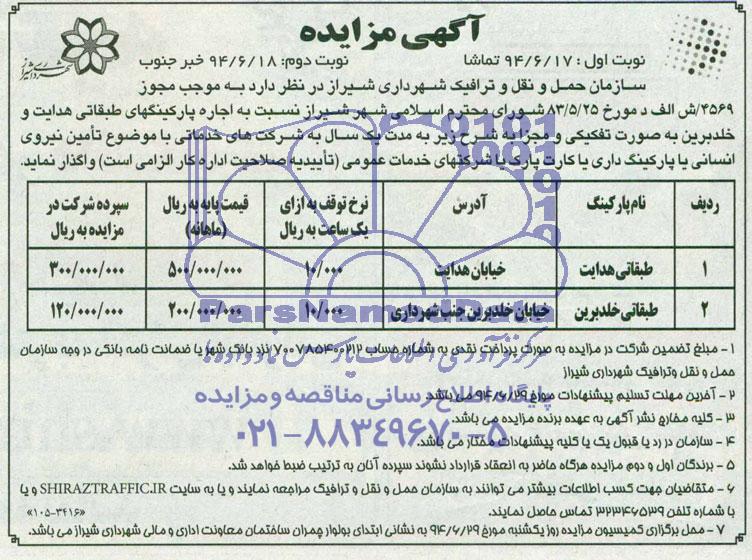 آگهی مزایده
نوبت اول: ۹۴/۶/۱۷ تماشا
نوبت دوم: ۹۴/۶/۱۸ خبر جنوب
شهرداری شیراز
سازمان حمل و نقل و ترافیک شهرداری شیراز در نظر دارد به موجب مجوز
۴۵۶۹/ش الف د مورخ ۸۳/۵/۲۵ شورای محترم اسلامی شهر شیراز نسبت به اجاره پارکینگهای طبقاتی هدایت و
خلدبرین به صورت تفکیکی و مجزا به شرح زیر به مدت یک سال به شرکت های خدماتی با موضوع تأمین نیروی
انسانی یا پارکینگ داری یا کارت پارک یا شرکتهای خدمات عمومی (تأییدیه صلاحیت اداره کار الزامی است) واگذار نماید.
ردیف نام پارکینگ آدرس نرخ توقف به ازای یک ساعت به ریال قیمت پایه به ریال (ماهانه) سپرده شرکت در مزایده به ریال
۱ طبقاتی هدایت خیابان هدایت ۱۰/۰۰۰ ۵۰۰/۰۰۰/۰۰۰ ۳۰۰/۰۰۰/۰۰۰
۲ طبقاتی خلدبرین خیابان خلدبرین جنب شهرداری ۱۰/۰۰۰ ۲۰۰/۰۰۰/۰۰۰ ۱۲۰/۰۰۰/۰۰۰
ParsNamadData
۱- مبلغ تضمین شرکت در مزایده به صورت پرداخت نقدی به شماره حساب ۷۰۰۷۸۵۴۰۰۲۱۲ نزد بانک شهر یا ضمانت نامه بانکی در وجه سازمان
حمل و نقل وترافیک شهرداری شیراز
۲- آخرین مهلت تسلیم پیشنهادات مورخ ۹۴/۶/۲۹ می باشد.
پایگاه اطلاع رسانی مناقصه و مزایده
۳- کلیه مخارج نشر آگهی به عهده برنده مزایده می باشد.
۴- سازمان در رد یا قبول یک یا کلیه پیشنهادات مختار می باشد.
۰۲۱-۸۸۳۴۹۶۷۰-۵
۵- برندگان اول و دوم مزایده هرگاه حاضر به انعقاد قرارداد نشوند سپرده آنان به ترتیب ضبط خواهد شد.
۶- متقاضیان جهت کسب اطلاعات بیشتر می توانند به سازمان حمل و نقل و ترافیک مراجعه نمایند و یا به سایت SHIRAZTRAFFIC.IR و یا
با شماره تلفن ۳۲۳۴۶۵۳۹ تماس حاصل نمایند.
«۱۰۵-۳۴۱۶»
۷- محل برگزاری کمیسیون مزایده روز یکشنبه مورخ ۹۴/۶/۲۹ به نشانی ابتدای بولوار چمران ساختمان معاونت اداری و مالی شهرداری شیراز می باشد.